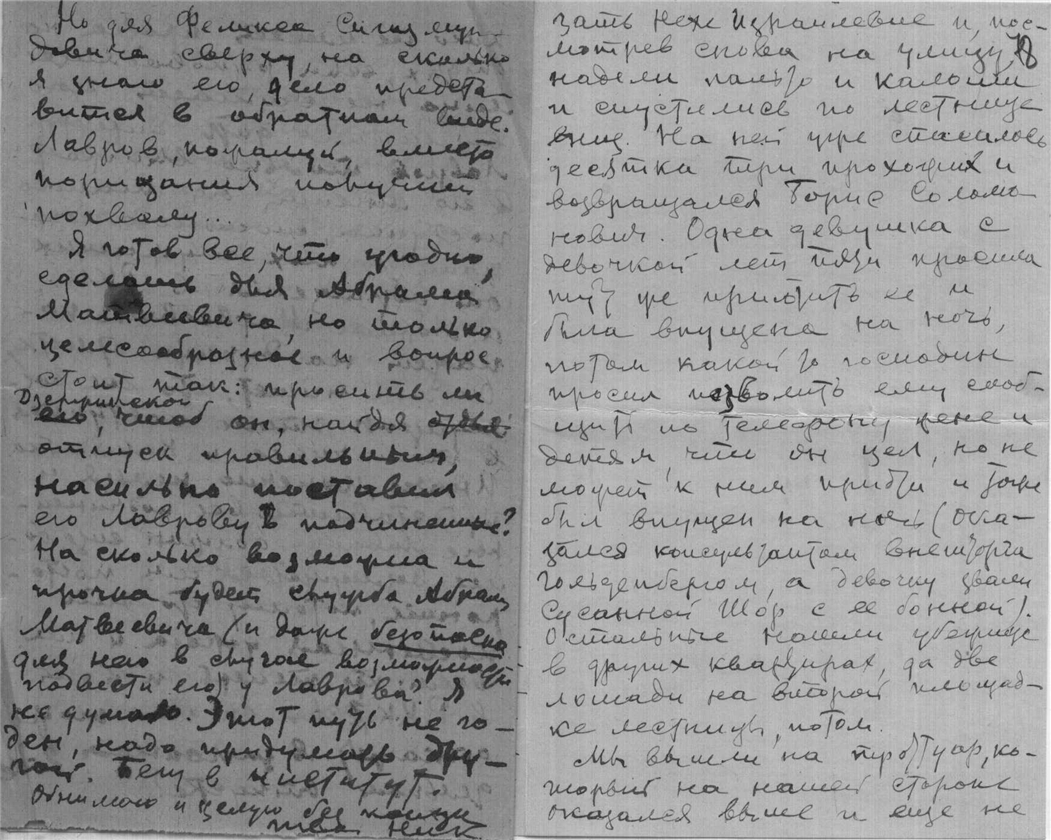 Но для Феликса Сигизмун-
довича сверху, на сколько
я знаю его, дело предста-
вится в обратном виде.
Лавров, пожалуй, вместо
порицания получит
похвалу...
Я готов все, что угодно,
сделать для Абрама
Матвеевича, но только
целесообразное и вопрос
стоит так: просить ли
Дзержинского
его, чтоб он, найдя
отпуск правильным,
насильно поставил
его Лаврову в подчиненные?
На сколько возможна и
прочна будет служба Абрама
Матвеевича (и даже безопасна
для него в случае возможности
подвести его) у Лаврова? Я
не думаю. Этот путь не го-
ден, надо придумать дру-
гой. Бегу в институт.
Обнимаю и целую без конца
твой Ник
зать Нехе Израилевне и, пос-
мотрев снова на улицу, 18
надели пальто и калоши
и спустились по лестнице
вниз. На ней уже спасилось
десятка три прохожих и
возвращался Борис Соломо
нович. Одна девушка с
девочкой лет пяти просила
тут же приютить ее и
была впущена на ночь,
потом какой то господин
просил позволить ему сооб-
щить по телефону жене и
детям, что он цел, но не
может к ним прийти и тоже
был впущен на ночь (ока-
зался консультантом внешторга
Гольденбергом, а девочку звали
Сусанной Шор с ее бонной).
Остальные нашли убежище
в других квартирах, да две
лошади на второй площад-
ке лестницы, потом.
Мы вышли на тротуар, ко-
торый на нашей стороне
оказался выше и еще не